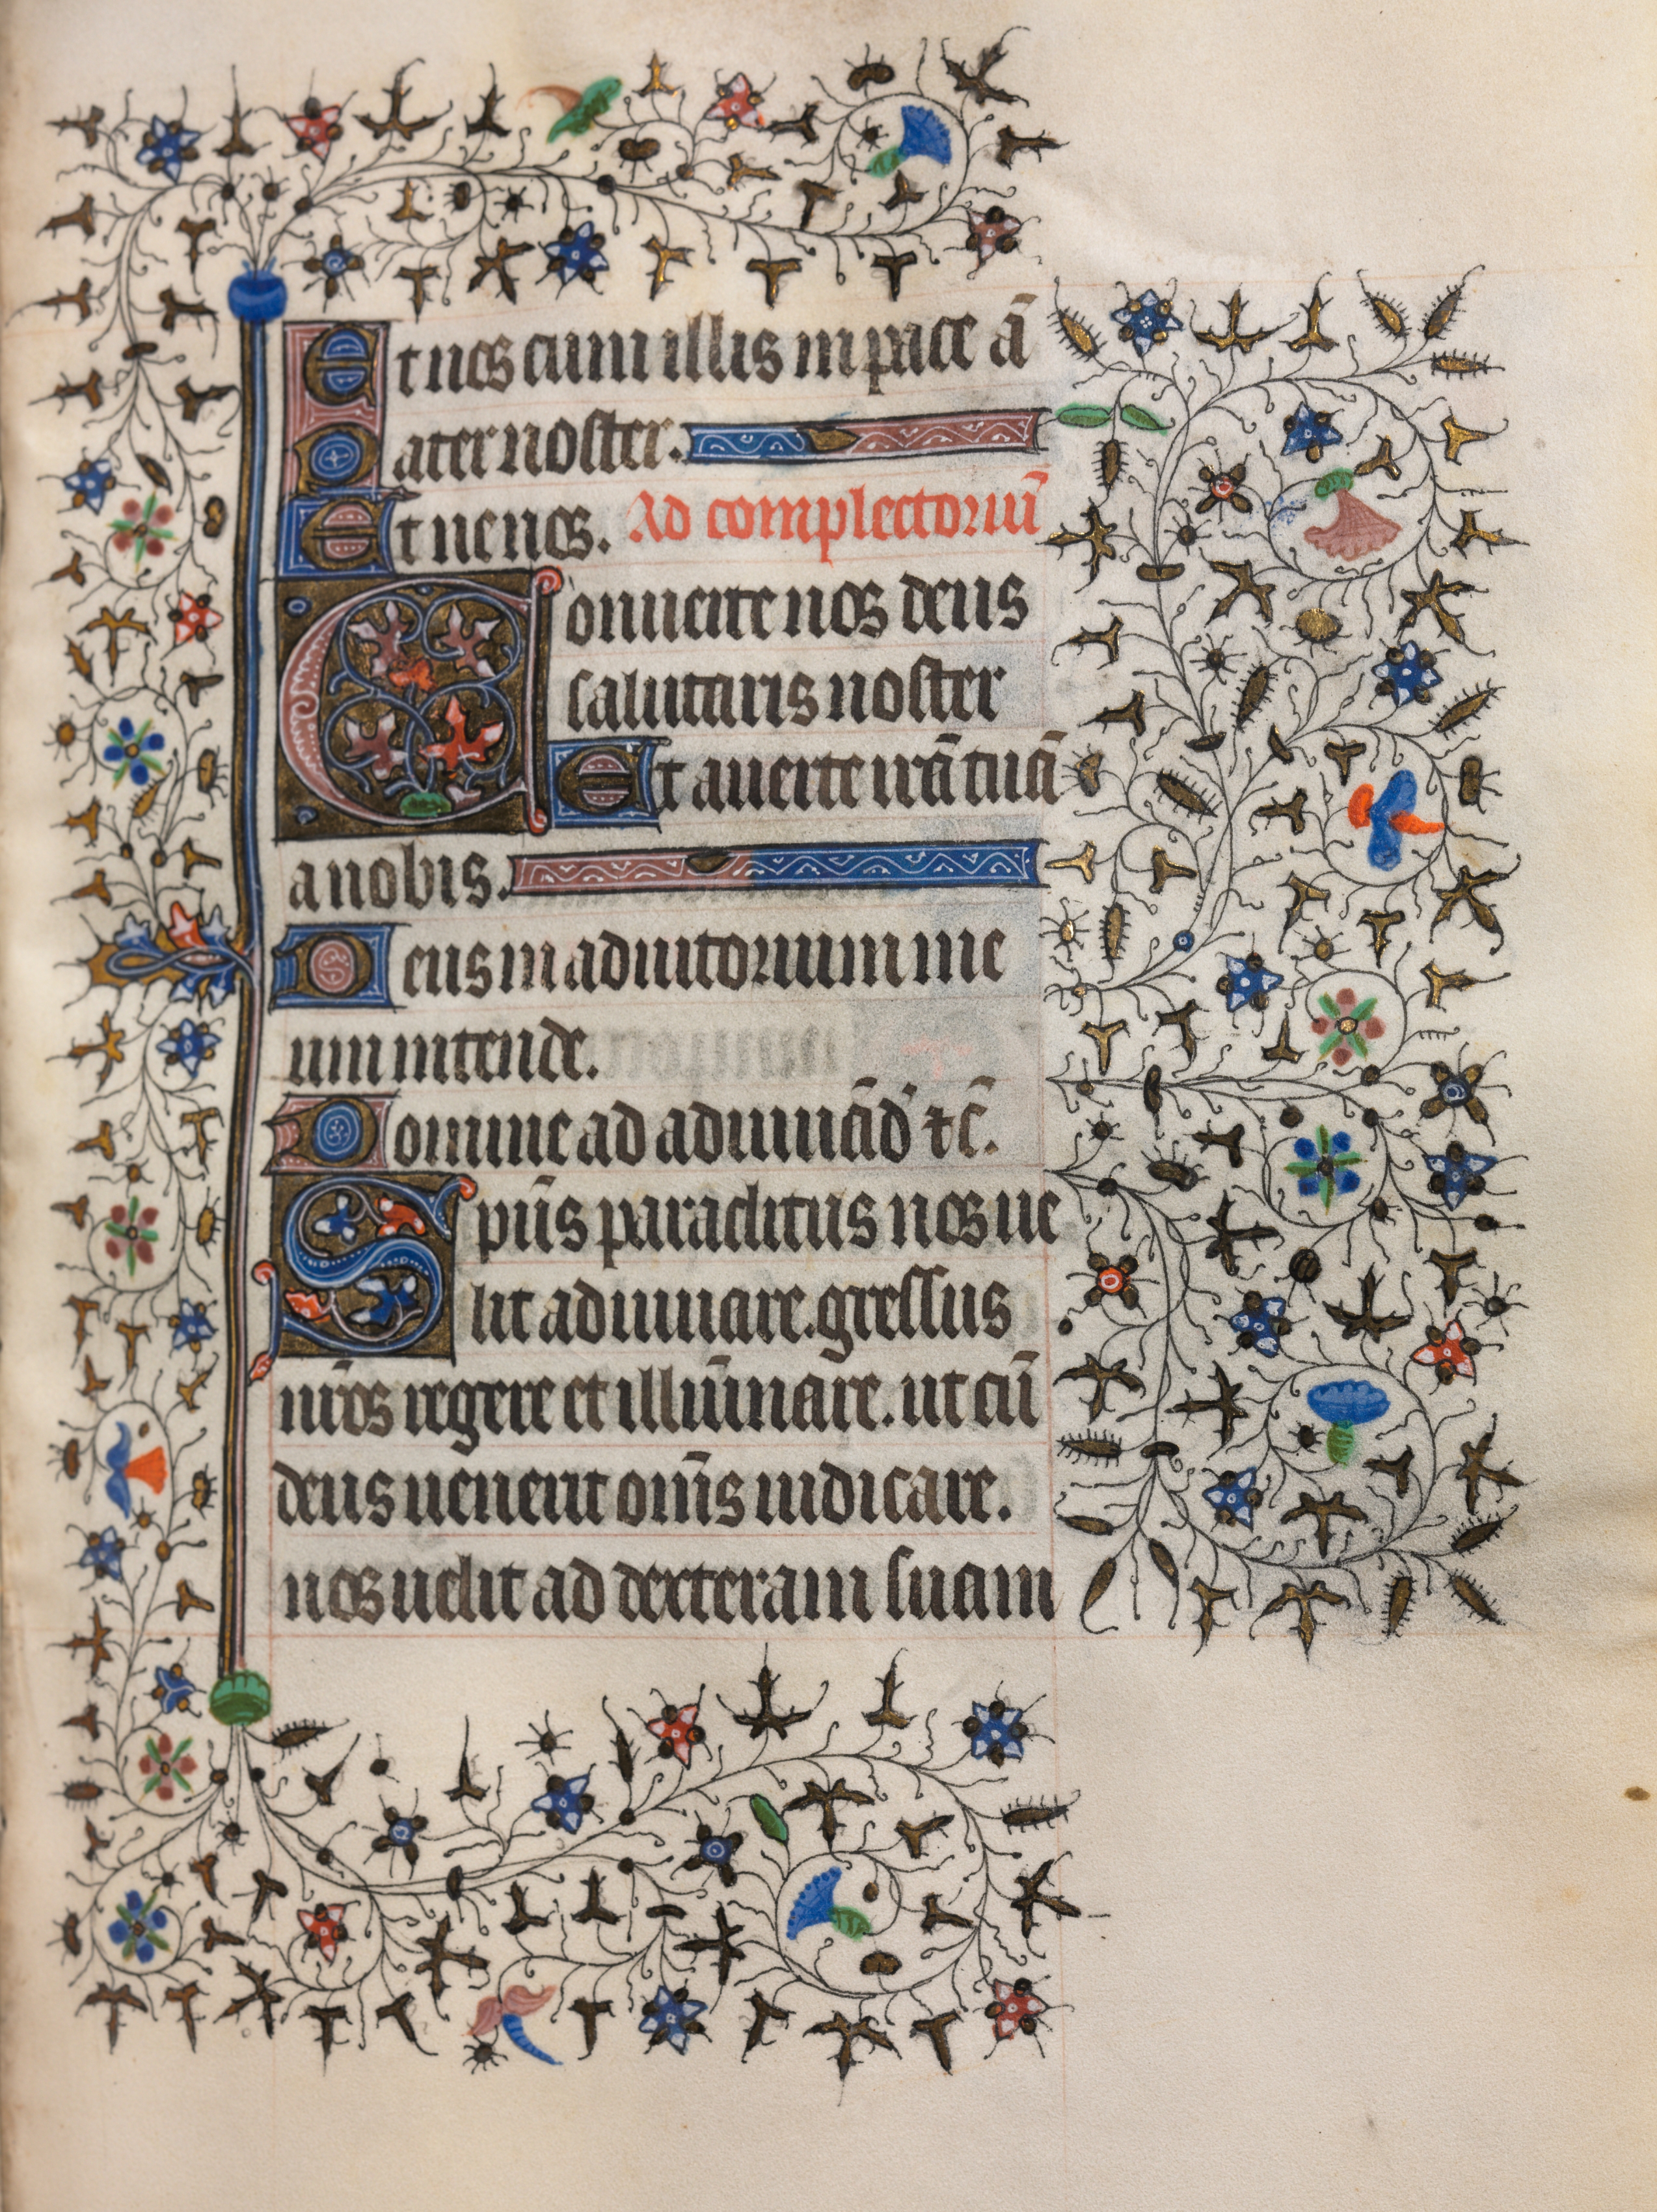 Et nos cum illis in pace a̅
Pater noster.
Et ne nos. Ad complectoriu̅
Conuerte nos deus
salutaris noster
Et auerte ira̅ tua̅
a nobis.
Deus in adiutorium me
um intende.
Domine ad adiuua̅d' ⁊c̅.
Sp̅us paraclitus nos ue
lit adiuuare. gressus
n̅ros regere et illu̅inare. ut cu̅
deus uenerit om̅s iudicare.
nos uelit ad dexteram suam